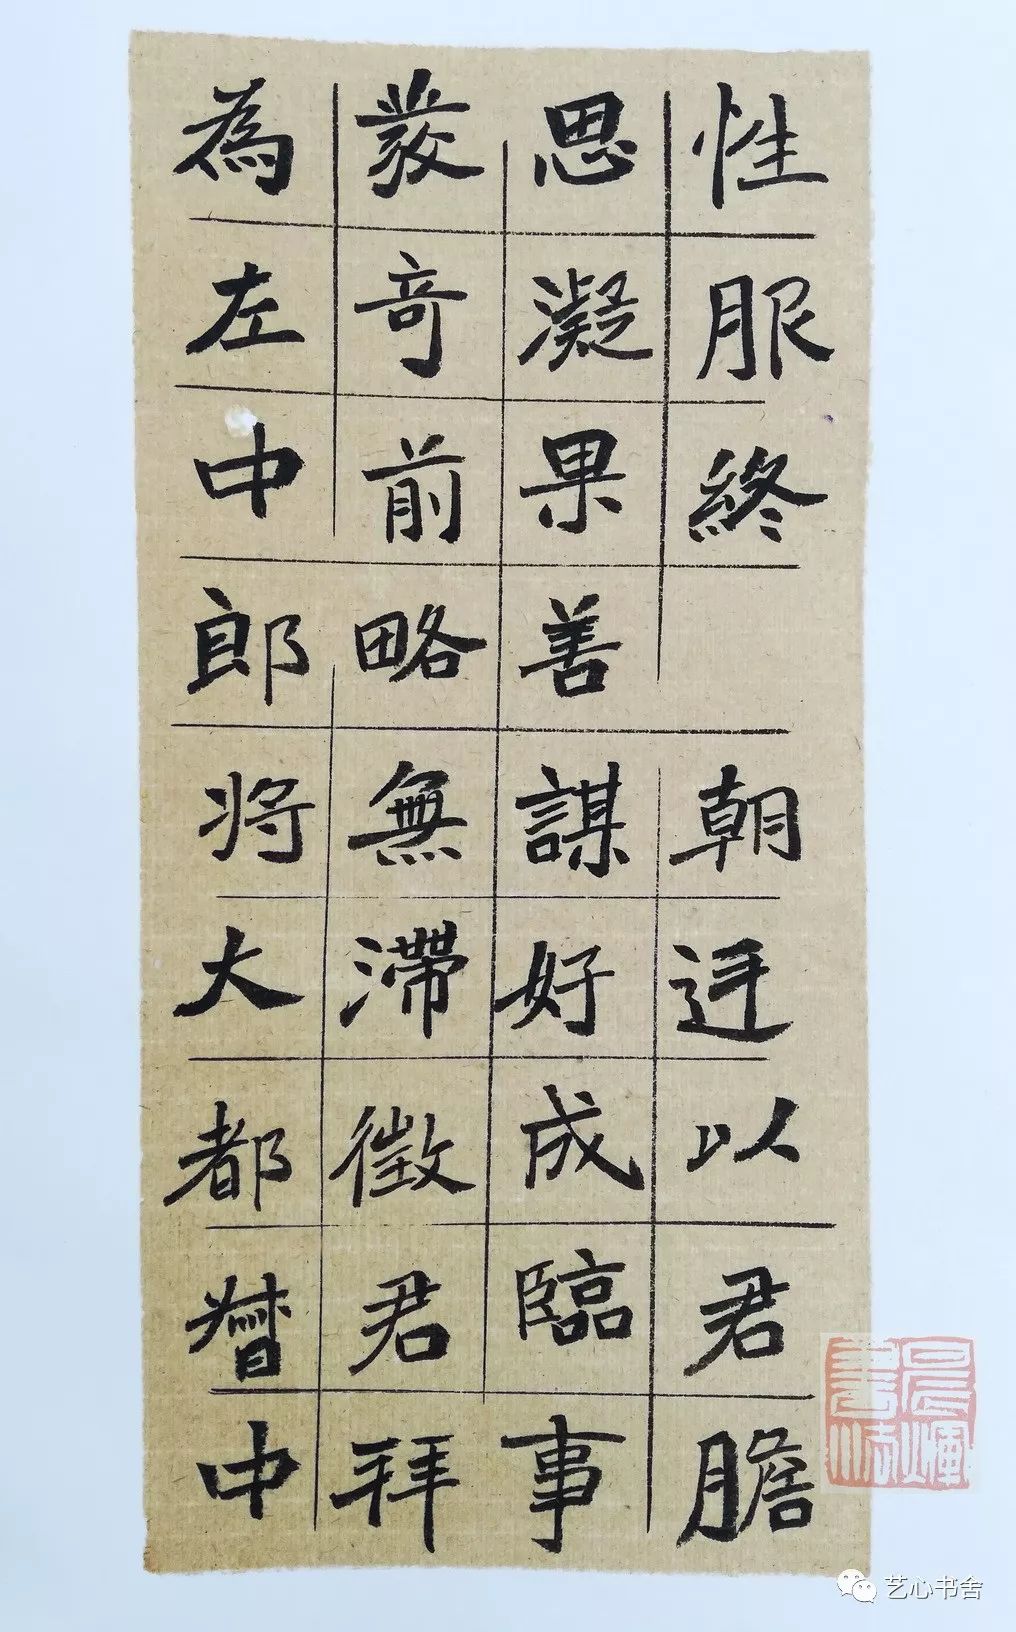 性服終 朝廷以君膽
思凝果善謀好成臨事
發奇前略無滯徵君拜
為左中郎将大都督中
艺心书舍